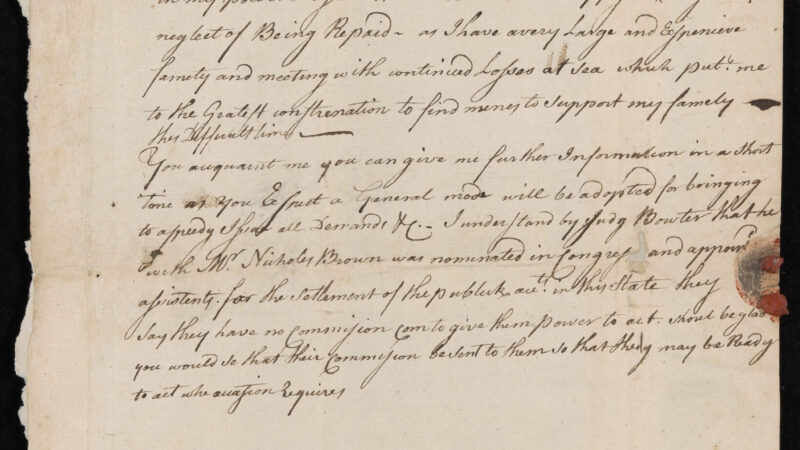 in my
neglect of Being Repaid - as I have a very Large and Expencieve
famely and meeting with continued Losses at sea which put.s me
to the Gratest consternation to find menes to support my famely
this Difficult time
You acquaint me you can give me further Information in a short
time as You Expect a General mode will be adopted for bringing
to a speedy Issue all Demands &C.- I understand by Judg Bowler that he
with Mr. Nicholes Brown was nominated in Congress and appoint
assistents for the settlement of the publick acct.s in this State they
say they have no commission com to give them power to act. Shoul be glad
you would se that their Commission be sent to them so that they may be Ready
to act whe Requires